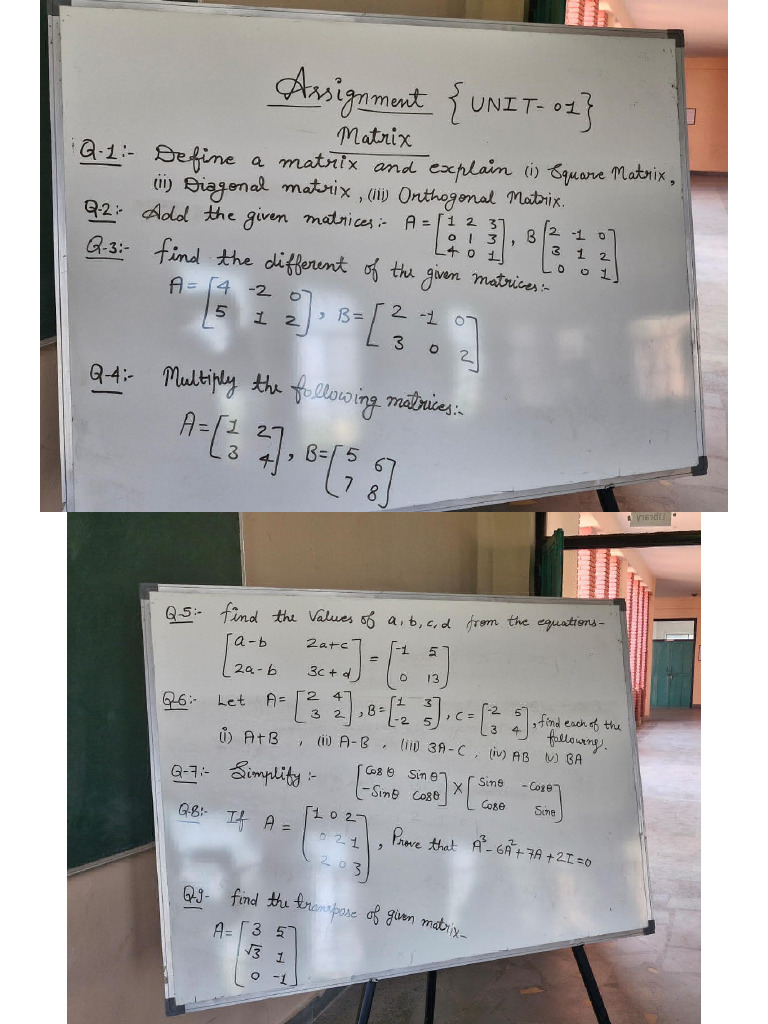 Assignment {UNIT-01}
Matrix
Q-1:- Define a matrix and explain (i) Square Matrix,
(ii) Diagonal matrix, (iii) Orthogonal Matrix.
Q-2:- Add the given matrices:- A = [1 2 3; 0 1 3; 4 0 1], B [2 -1 0; 3 1 2; 0 0 1]
Q-3:- find the different of the given matrices:-
A = [4 -2 0; 5 1 2], B = [2 -1 0; 3 0 2]
Q-4:- Multiply the following matrices:-
A = [1 2; 3 4], B = [5 6; 7 8]
Q-5:- find the values of a, b, c, d from the equations-
[a-b 2a+c; 2a-b 3c+d] = [-1 5; 0 13]
Q-6:- Let A = [2 4; 3 2], B = [1 3; -2 5], C = [-2 5; 3 4], find each of the following.
(i) A+B, (ii) A-B, (iii) 3A-C, (iv) AB (v) BA
Q-7:- Simplify:- [Cosθ Sinθ; -Sinθ Cosθ] X [Sinθ -Cosθ; Cosθ Sinθ]
Q-8:- If A = [1 0 2; 0 2 1; 2 0 3], Prove that A³-6A²+7A+2I=0
Q-9- find the tranrpose of given matrix-
A = [3 5; √3 1; 0 -1]
Library